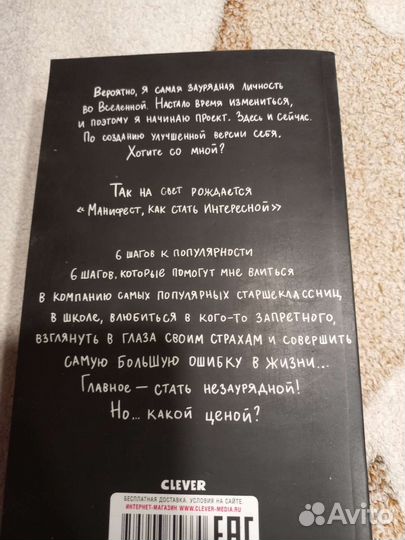 Вероятно, я самая заурядная личность
во Вселенной. Настало время измениться,
и поэтому я начинаю проект. Здесь и сейчас.
По созданию улучшенной версии себя.
Хотите со мной?
Так на свет рождается
«Манифест, как стать Интересной»
6 шагов к популярности
6 шагов, которые помогут мне влиться
в компанию самых популярных старшеклассниц
в школе, влюбиться в кого-то запретного,
взглянуть в глаза своим страхам и совершить
самую большую ошибку в жизни...
Главное — стать незаурядной!
Но... какой ценой?
CLEVER
БЕСПЛАТНАЯ ДОСТАВКА. УСЛОВИЯ НА САЙТЕ
ИНТЕРНЕТ-МАГАЗИН WWW.CLEVER-MEDIA.RU
EAC
Avito